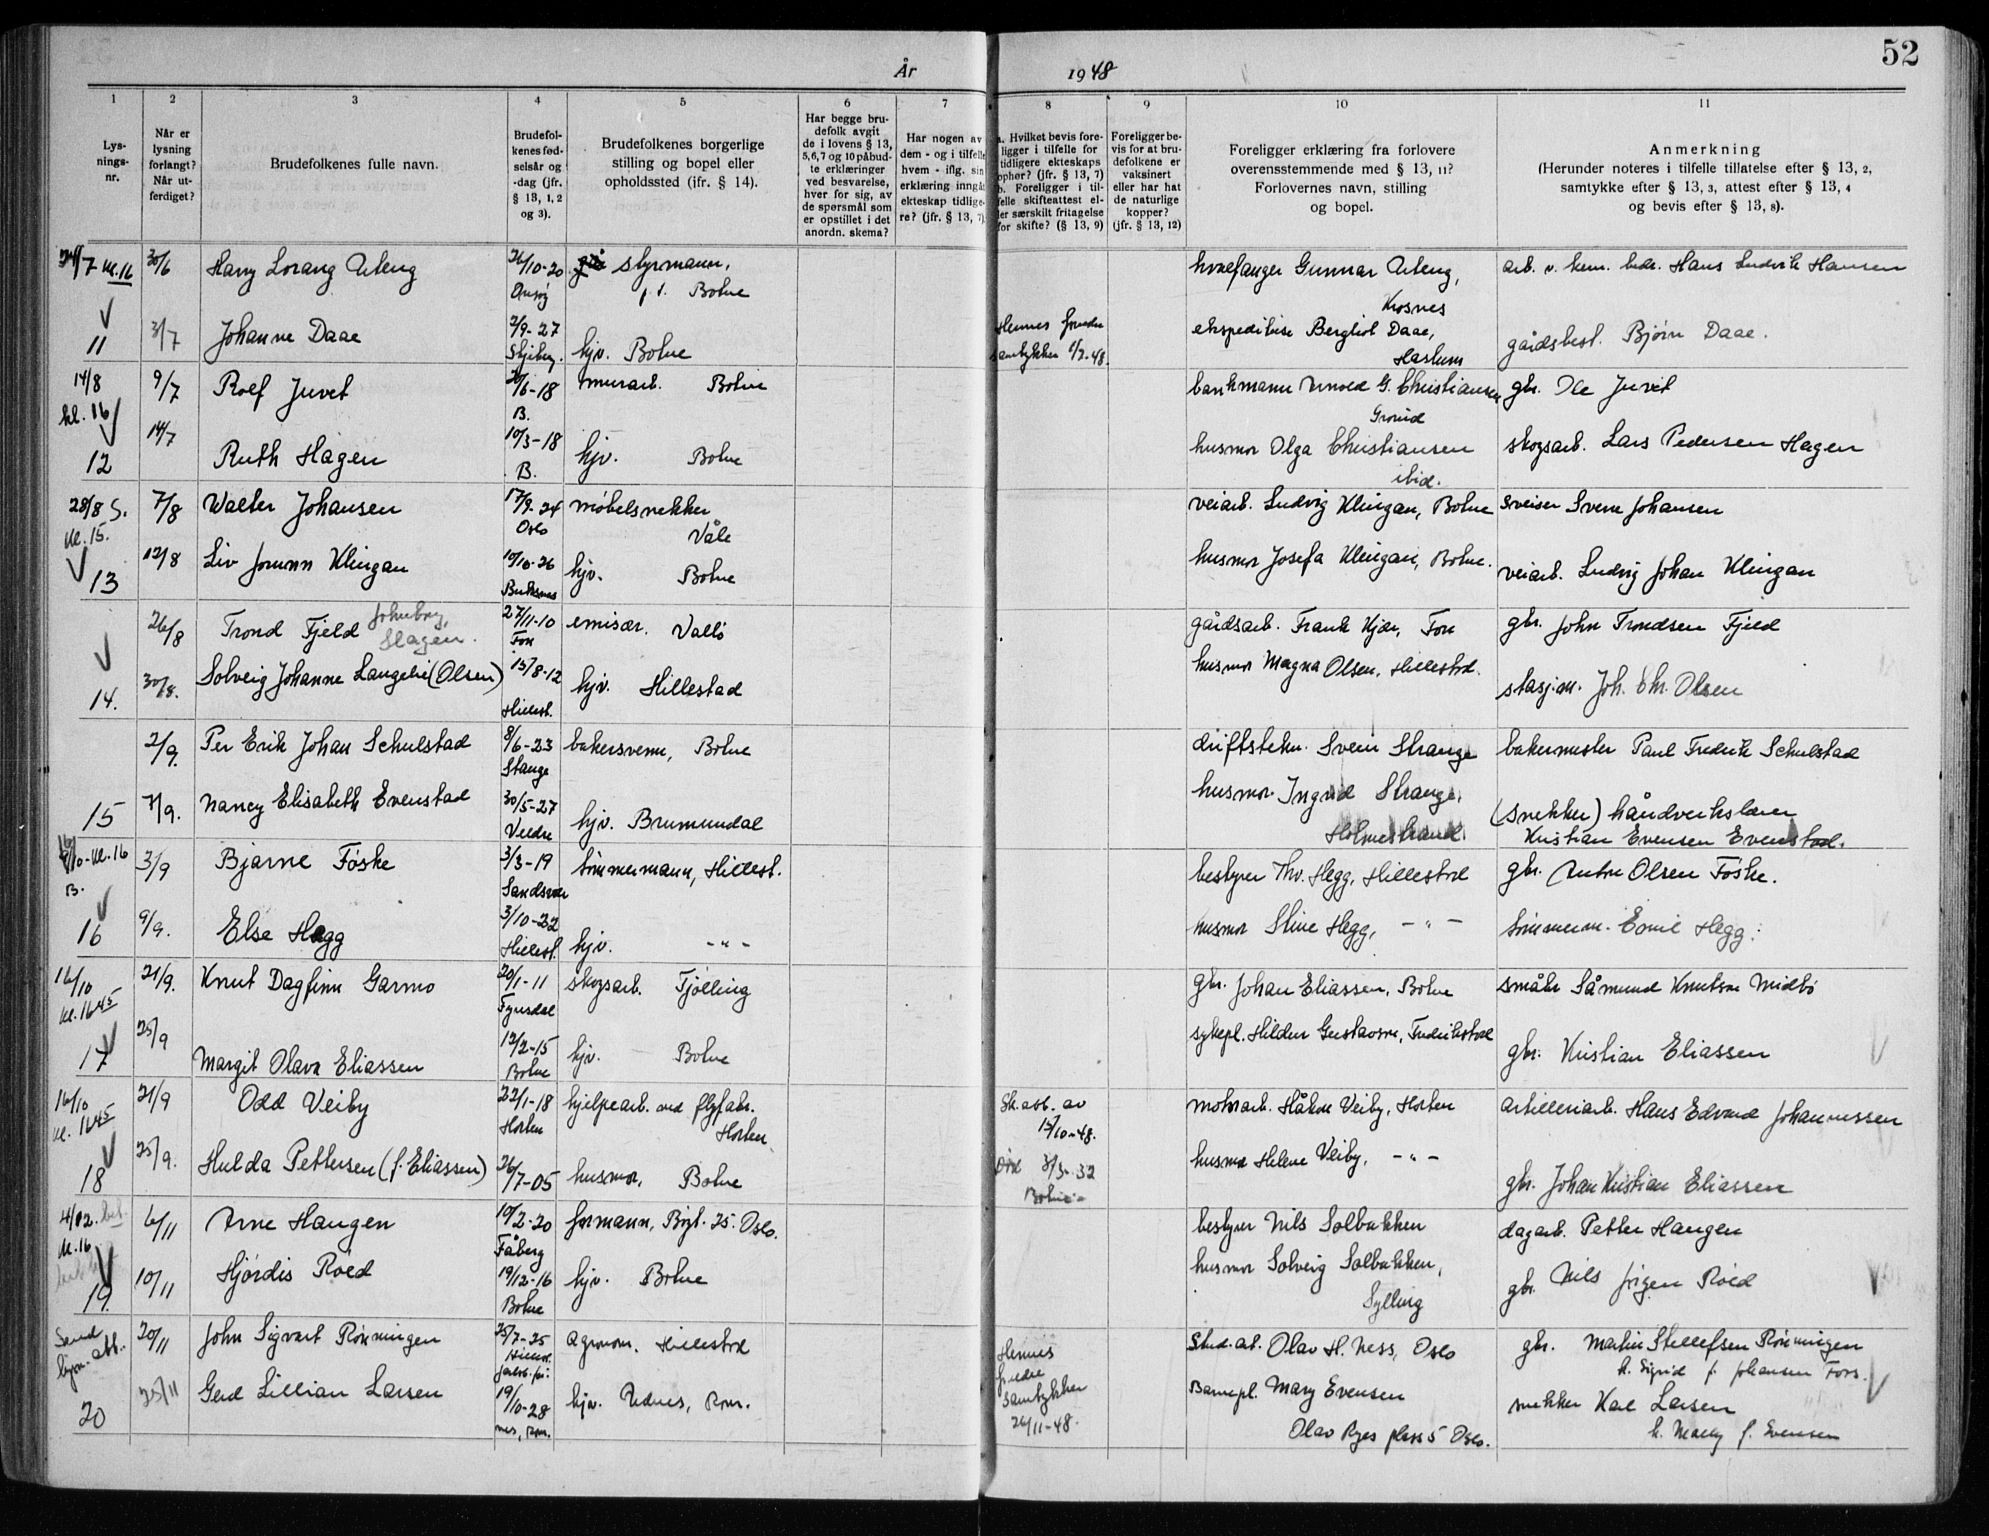 52
År 1948
1
2
3
4
5
6
7
8
9
10
11
Lys-
nings-
nr.
Når er
lysning
forlangt?
Når ut-
ferdiget?
Brudefolkenes fulle navn.
Brudefol-
kenes fød-
selsår og
-dag (jfr.
§ 13, 1, 2
og 3).
Brudefolkenes borgerlige
stilling og bopel eller
opholdssted (ifr. § 14).
Har begge bru-
defolk avgit
de i lovens § 13,
5, 6, 7 og 10 påbud-
te erklæringer
ved besvarelse,
hver for sig, av
de spørsmål som
er opstillet i det
anordn. skema?
Har nogen av
dem - og i tilfelle
hvem - iflg. sin
erklæring inngåt
ekteskap tidlige-
re? (jfr. § 13, 7)
a. Hvilket bevis fore-
ligger i tilfelle for
tidligere ekteskaps
ophør? (jfr. § 13, 7)
b. Foreligger i til-
felle skifteattest el-
ler særskilt fritagelse
for skifte? (§ 13, 9)
Foreligger be-
vis for at bru-
defolkene er
vaksinert
eller har hat
de naturlige
kopper?
(jfr. § 13, 12)
Foreligger erklæring fra forlovere
overensstemmende med § 13, 11?
Forlovernes navn, stilling
og bopel.
Anmerkning
(Herunder noteres i tilfelle tillatelse efter § 13, 2,
samtykke efter § 13, 3, attest efter § 13, 4
og bevis efter § 13, 8).
24/7 kl. 16 30/6 Harry Lorang Uleng 26/10-20 styrmann, hvalfanger Gunnar Uleng, arb. v. kem. bedr. Hans Ludvik Hansen
Onsøy p.t. Botne Krosnes
11 3/7 Johanne Daae 2/9-27 Hennes foreldre ekspeditrise Bergliot Daae, gårdsbest. Bjørn Daae.
Skjeberg. hjv. Botne samtykker 1/7-48. Haslum
14/8 9/7 Rolf Juvet /6-18 murarb. Botne bankmann Arnold G. Christiansen gbr. Ole Juvet
kl. 16 B. Grorud
14/7
12 Ruth Hagen 10/3-18 hjv. Botne husmor Olga Christiansen skogsarb. Lars Pedersen Hagen
B. ibid.
28/8 S. 7/8 Walter Johansen 17/9-24 møbelsnekker veiarb. Ludvig Klingan, Botne sveiser Sverre Johansen
kl. 15. Oslo Våle
13 12/8 Liv Jorunn Klingan 10/10-26 hjv. Botne husmor Josefa Klingan, Botne. veiarb. Ludvig Johan Klingan
Buksnes
26/8 Trond Fjeld 27/11-10 emisær. Vallø gårdsarb. Frank Kjær, Fon gbr. John Trondsen Fjeld
Slagen. Fon
14. 30/8. Solveig Johanne Langelie (Olsen) 15/8-12 hjv. Hillestad husmor Magna Olsen, Hillestad. stasj.m. Joh. Chr. Olsen
Hillest.
2/9. Per Erik Johan Schulstad 8/6-23 bakersvenn, Botne driftstekn. Svein Strange bakermester Paul Fredrik Schulstad
Stange
15 7/9. Nancy Elisabeth Evenstad 30/5-27 husmor Ingrid Strange, (snekker) håndverkslærer
Veldre hjv. Brumunddal Holmestrand. Kristian Evensen Evenstad.
9/10-kl. 16 3/9 Bjarne Føske 3/3-19 tømmermann, Hillest. bestyrer Thv. Hegg, Hillestad gbr. Anton Olsen Føske.
B. Sandsvær
16 9/9. Else Hegg 3/10-22 husmor Stine Hegg, - " - tømmerm. Emil Hegg.
Hillest. hjv. - " -
16/10 21/9. Knut Dagfinn Garmo 20/1-11 skogsarb. Tjølling gbr. Johan Eliassen, Botne småbr. Såmund Knutson Midbø
kl. 16 45 Fyresdal
17 25/9 Margit Olava Eliassen 12/2-15 hjv. Botne sykepl. Hildur Gustavson, Fredrikstad gbr. Kristian Eliassen
Botne
16/10 21/9 Odd Veiby 22/1-18 hjelpearb. ved flyfabr. Sk. att. av motorarb. Håkon Veiby, Horten artilleriarb. Hans Edvard Johannessen
kl. 16 45 Horten Horten 15/10-48.
18 25/9. Hulda Pettersen (f. Eliassen) 26/7-05 husmor, Botne 3/3-32 husmor Helene Veiby, - " - gbr. Johan Kristian Eliassen
Botne
4/12. 6/11 Arne Haugen 10/2-20 formann, Bygt. 25. Oslo. bestyrer Nils Solbakken dagarb. Petter Haugen
kl. 16 Fåberg
19. 10/11 Hjørdis Røed 19/12-16 hjv. Botne husmor Solveig Solbakken, gbr. Nils Jørgen Røed
Botne Sylling
Send 20/11 John Sigvart Rønningen 25/7-25 agronom. Hillestad Hennes Stud. at. Olav H. Ness, Oslo gbr. Martin Stellefsen Rønningen
att. Hillest. foreldre h. Sigrid f. Johansen Fors.
20 25/11 Gerd Lillian Larsen 19/10-28 hjv. Udnes, Rom. samtykker Barnepl. Mary Evensen snekker Karl Larsen
nes, Rom. 26/11-48. Olav Ryes plass 5 Oslo. h. Mally f. Evensen